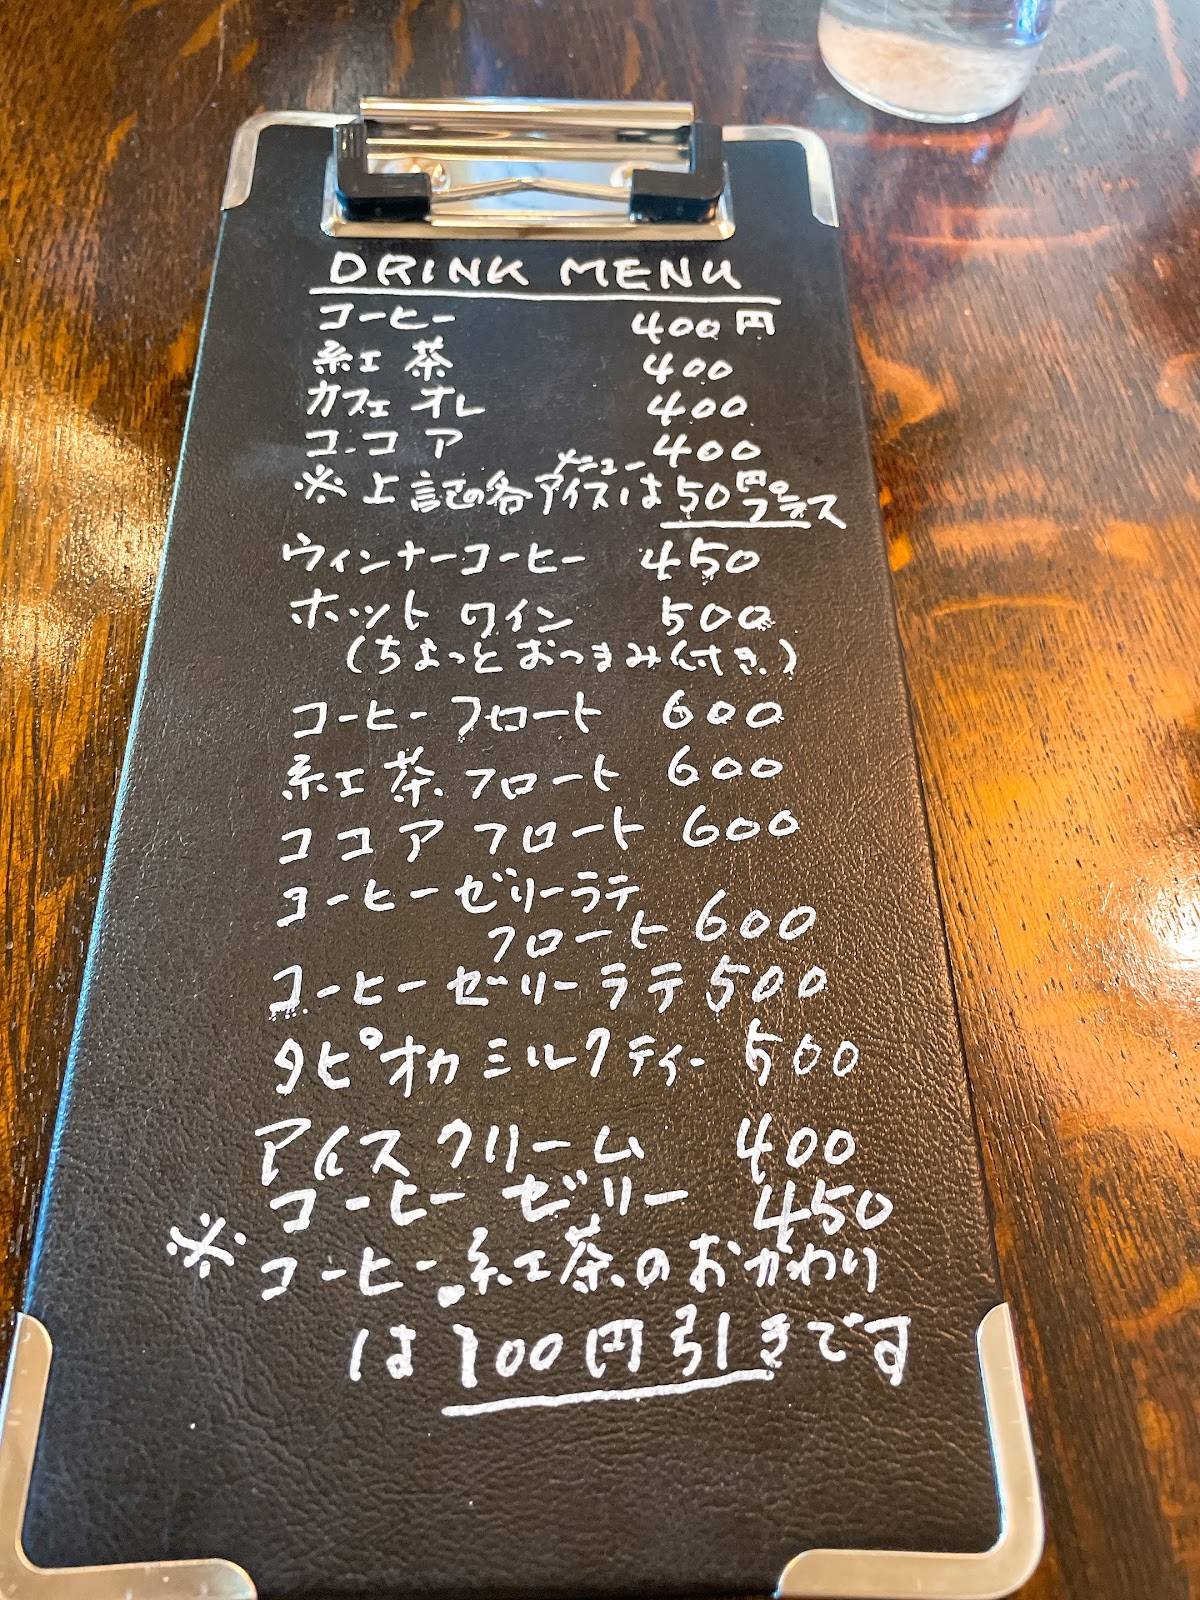 DRINK MENU
コーヒー 400円
紅茶 400
カフェオレ 400
ココア 400
※上記の各アイスメニューは50円プラス
ウィンナーコーヒー 450
ホットワイン 500
(ちょっとおつまみ付き)
コーヒーフロート 600
紅茶フロート 600
ココアフロート 600
コーヒーゼリーラテ
フロート 600
コーヒーゼリーラテ 500
タピオカミルクティー 500
アイスクリーム 400
コーヒーゼリー 450
※コーヒー、紅茶のおかわり
は100円引きです